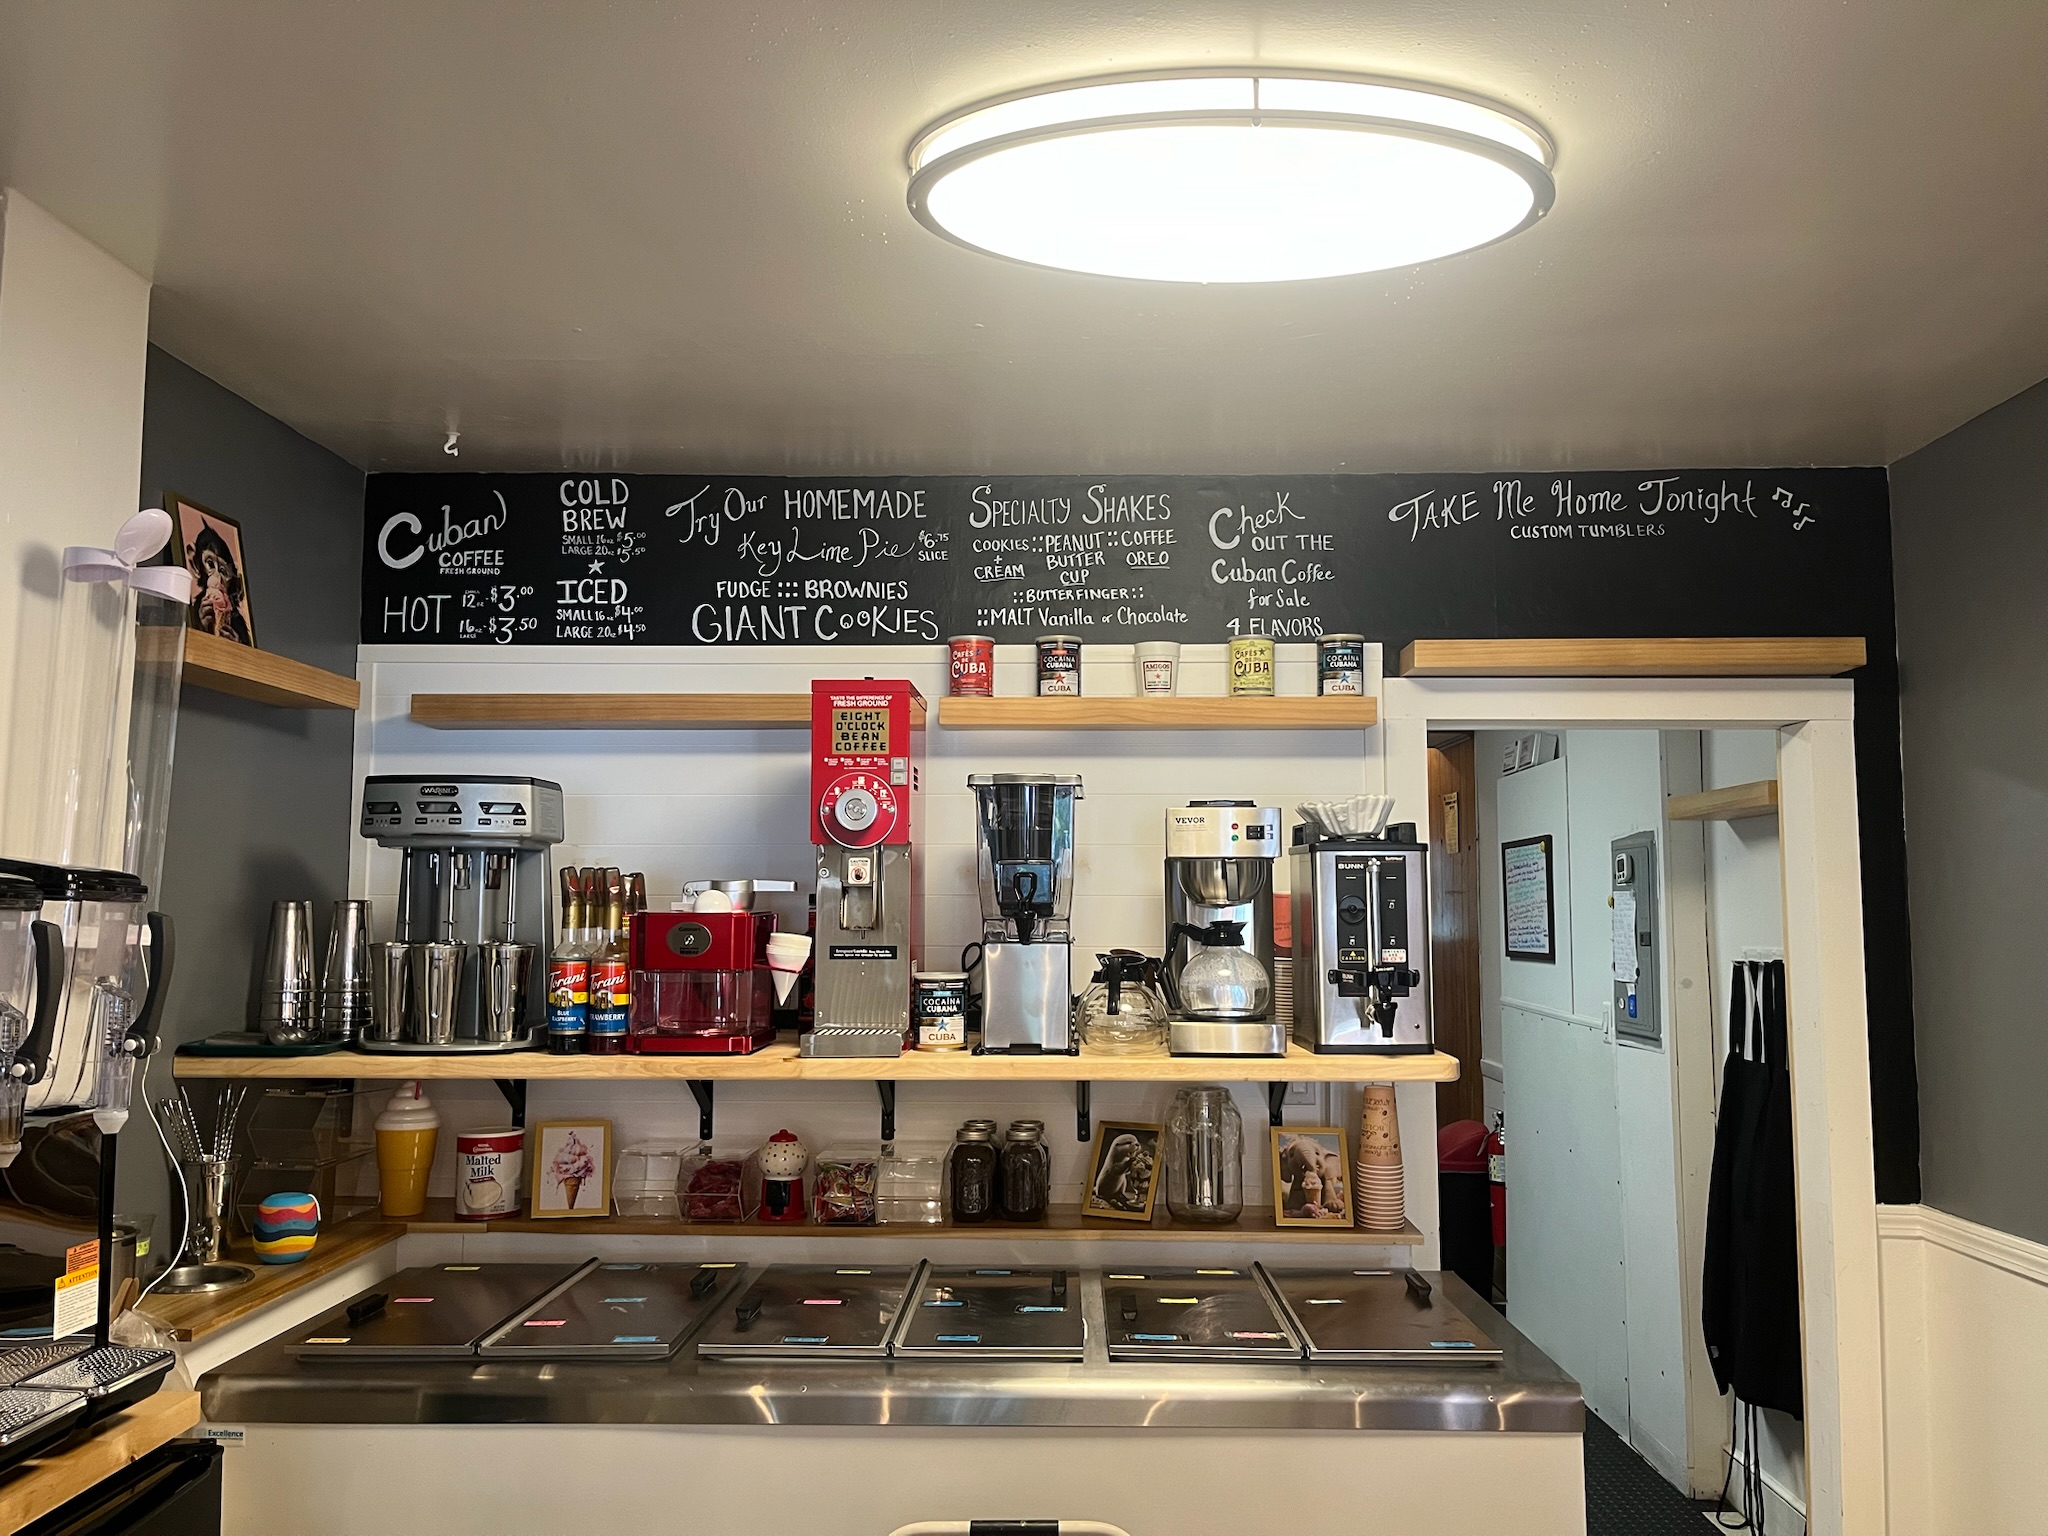 Cuban
COFFEE
FRESH GROUND
HOT
SMALL
12 oz - $3.00
16 oz - $3.50
LARGE
COLD
BREW
SMALL 16 oz $5.00
LARGE 20 oz $5.50
ICED
SMALL 16 oz $4.00
LARGE 20 oz $4.50
Try Our HOMEMADE
Key Lime Pie $6.75
SLICE
FUDGE ::: BROWNIES
GIANT COOKIES
SPECIALTY SHAKES
COOKIES :: PEANUT :: COFFEE
+ BUTTER OREO
CREAM CUP
:: BUTTERFINGER ::
:: MALT Vanilla or Chocolate
Check
OUT THE
Cuban Coffee
for Sale
4 FLAVORS
TAKE Me Home Tonight
CUSTOM TUMBLERS
CAFÉS
DE
CUBA
COCAÍNA
CUBANA
CUBA
AMIGOS
CAFÉS
DE
CUBA
COCAÍNA
CUBANA
CUBA
TASTE THE DIFFERENCE OF
FRESH GROUND
EIGHT
O'CLOCK
BEAN
COFFEE
CAUTION
WARING
Torani
BLUE
RASPBERRY
Torani
STRAWBERRY
COCAÍNA
CUBANA
CUBA
VEVOR
BUNN
CAUTION
Malted
Milk
ATTENTION
Excellence